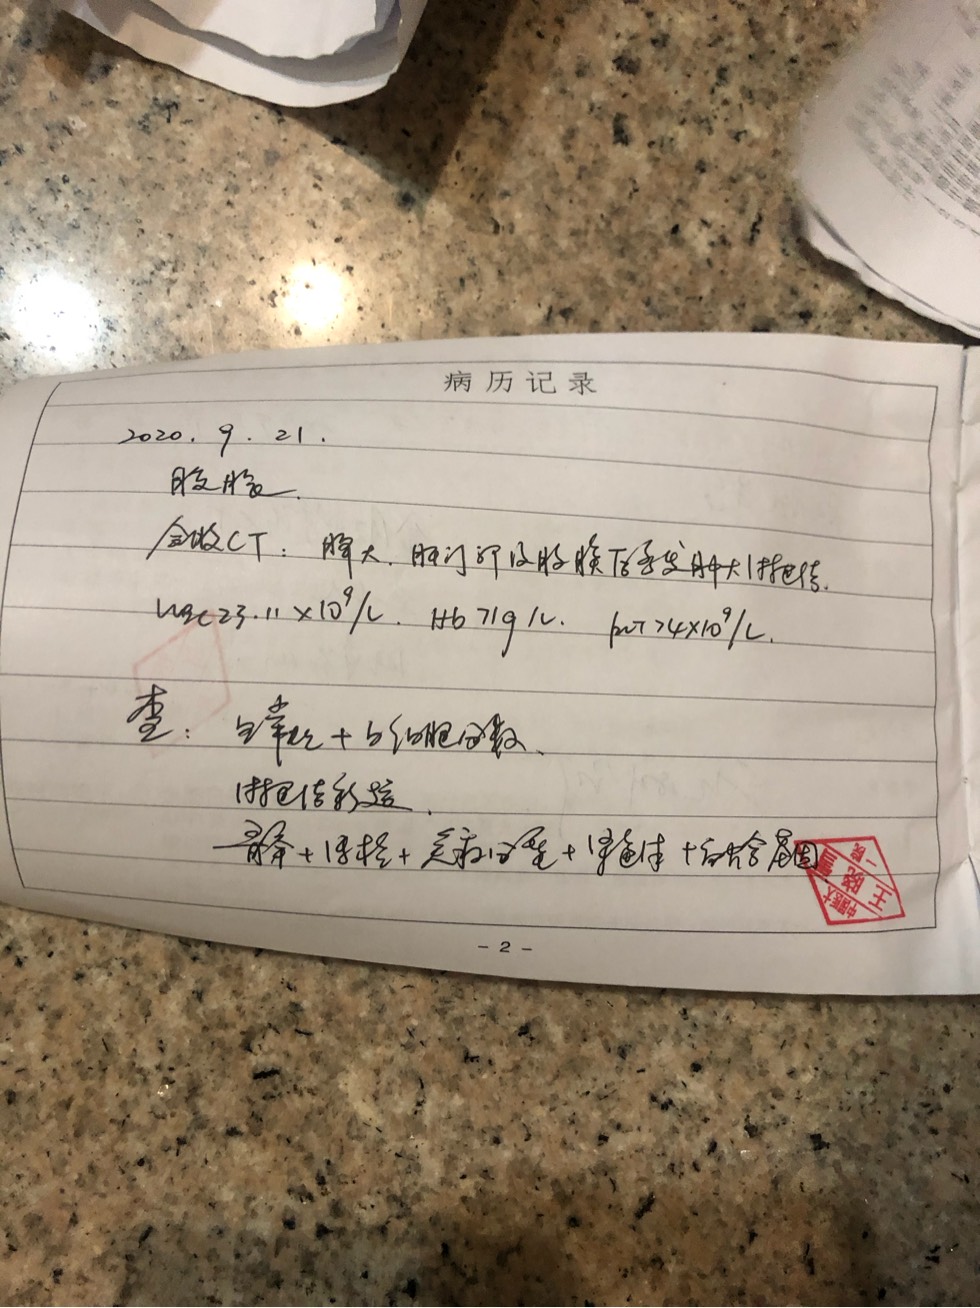 病历记录
2020. 9. 21.
腹胀.
全腹CT: 脾大. 肝门部及腹膜后多发肿大淋巴结.
WBC 23.11×10⁹/L. Hb 71g/L. PLT 74×10⁹/L.
查: 血常规 + 白细胞分数、
淋巴结彩超.
骨穿 + 活检 + 免疫分型 + 染色体 + 融合基因
- 2 -